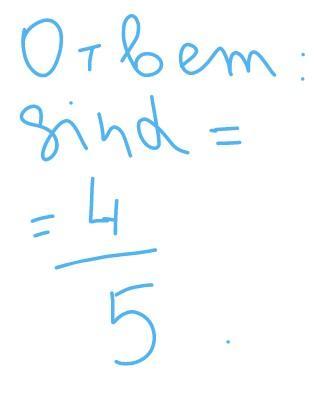 Ответ:
sinα =
= 4/5.